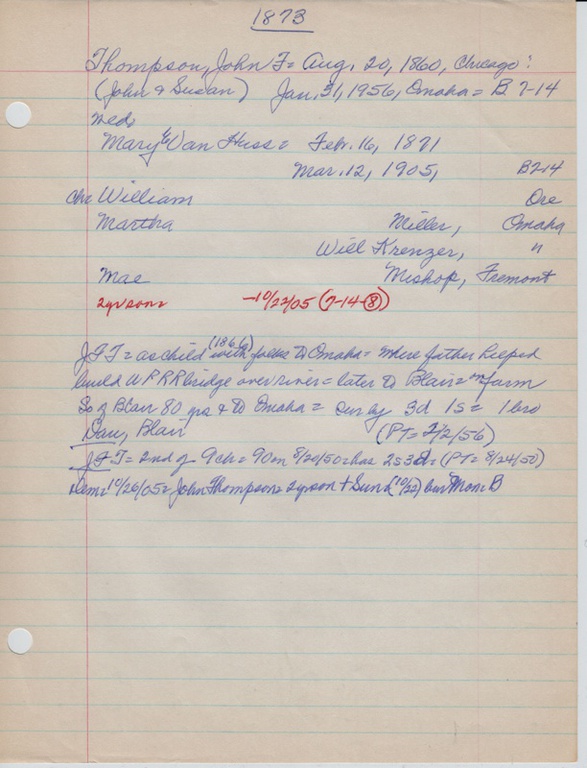 1873
Thompson, John F = Aug. 20, 1860, Chicago:
(John & Susan) Jan. 31, 1956, Omaha = B 7-14
Med,
Mary E Van Huss = Feb. 16, 1871
Mar. 12, 1905, B7-14
ch = William Ore
Martha Miller, Omaha
Will Krenzer, "
Mae Mishop, Fremont
2yr son = -10/22/05 (7-14-8)
JFT = as child (1866) with folks to Omaha = where father helped
build UPRR bridge over river = later to Blair = on farm
So of Blair 80 yrs & to Omaha = sur by 3d 1s = 1 bro
Dan, Blair (PT = 2/2/56)
JFT = 2nd of 9ch = 90 on 8/20/50 = has 2s 3d = (PT = 8/24/50)
Dem = 10/26/05 = John Thompson = 2yr son + Sun k (10/22) bur Mon = B